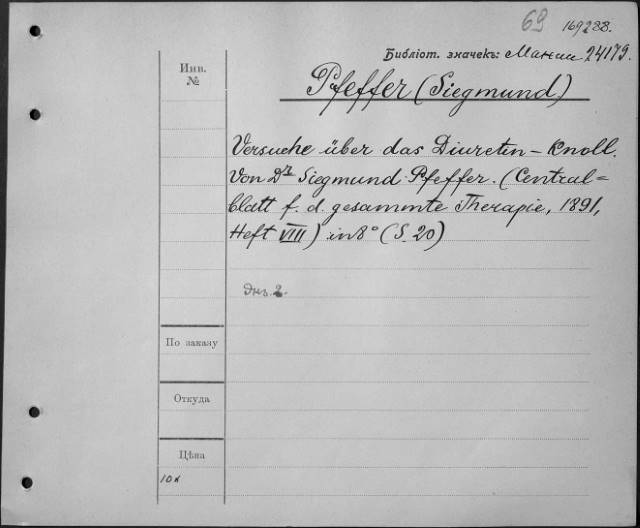 69 169288.
Библіот. значекъ: 24179.
Инв.
№
Pfeffer (Siegmund)
Versuche über das Diuretin-Knoll.
Von Dr Siegmund Pfeffer. (Central=
blatt f. d. gesammte Therapie, 1891,
Heft VIII) in 8° (S. 20)
Экз. 2.
По заказу
Откуда
Цѣна
10к